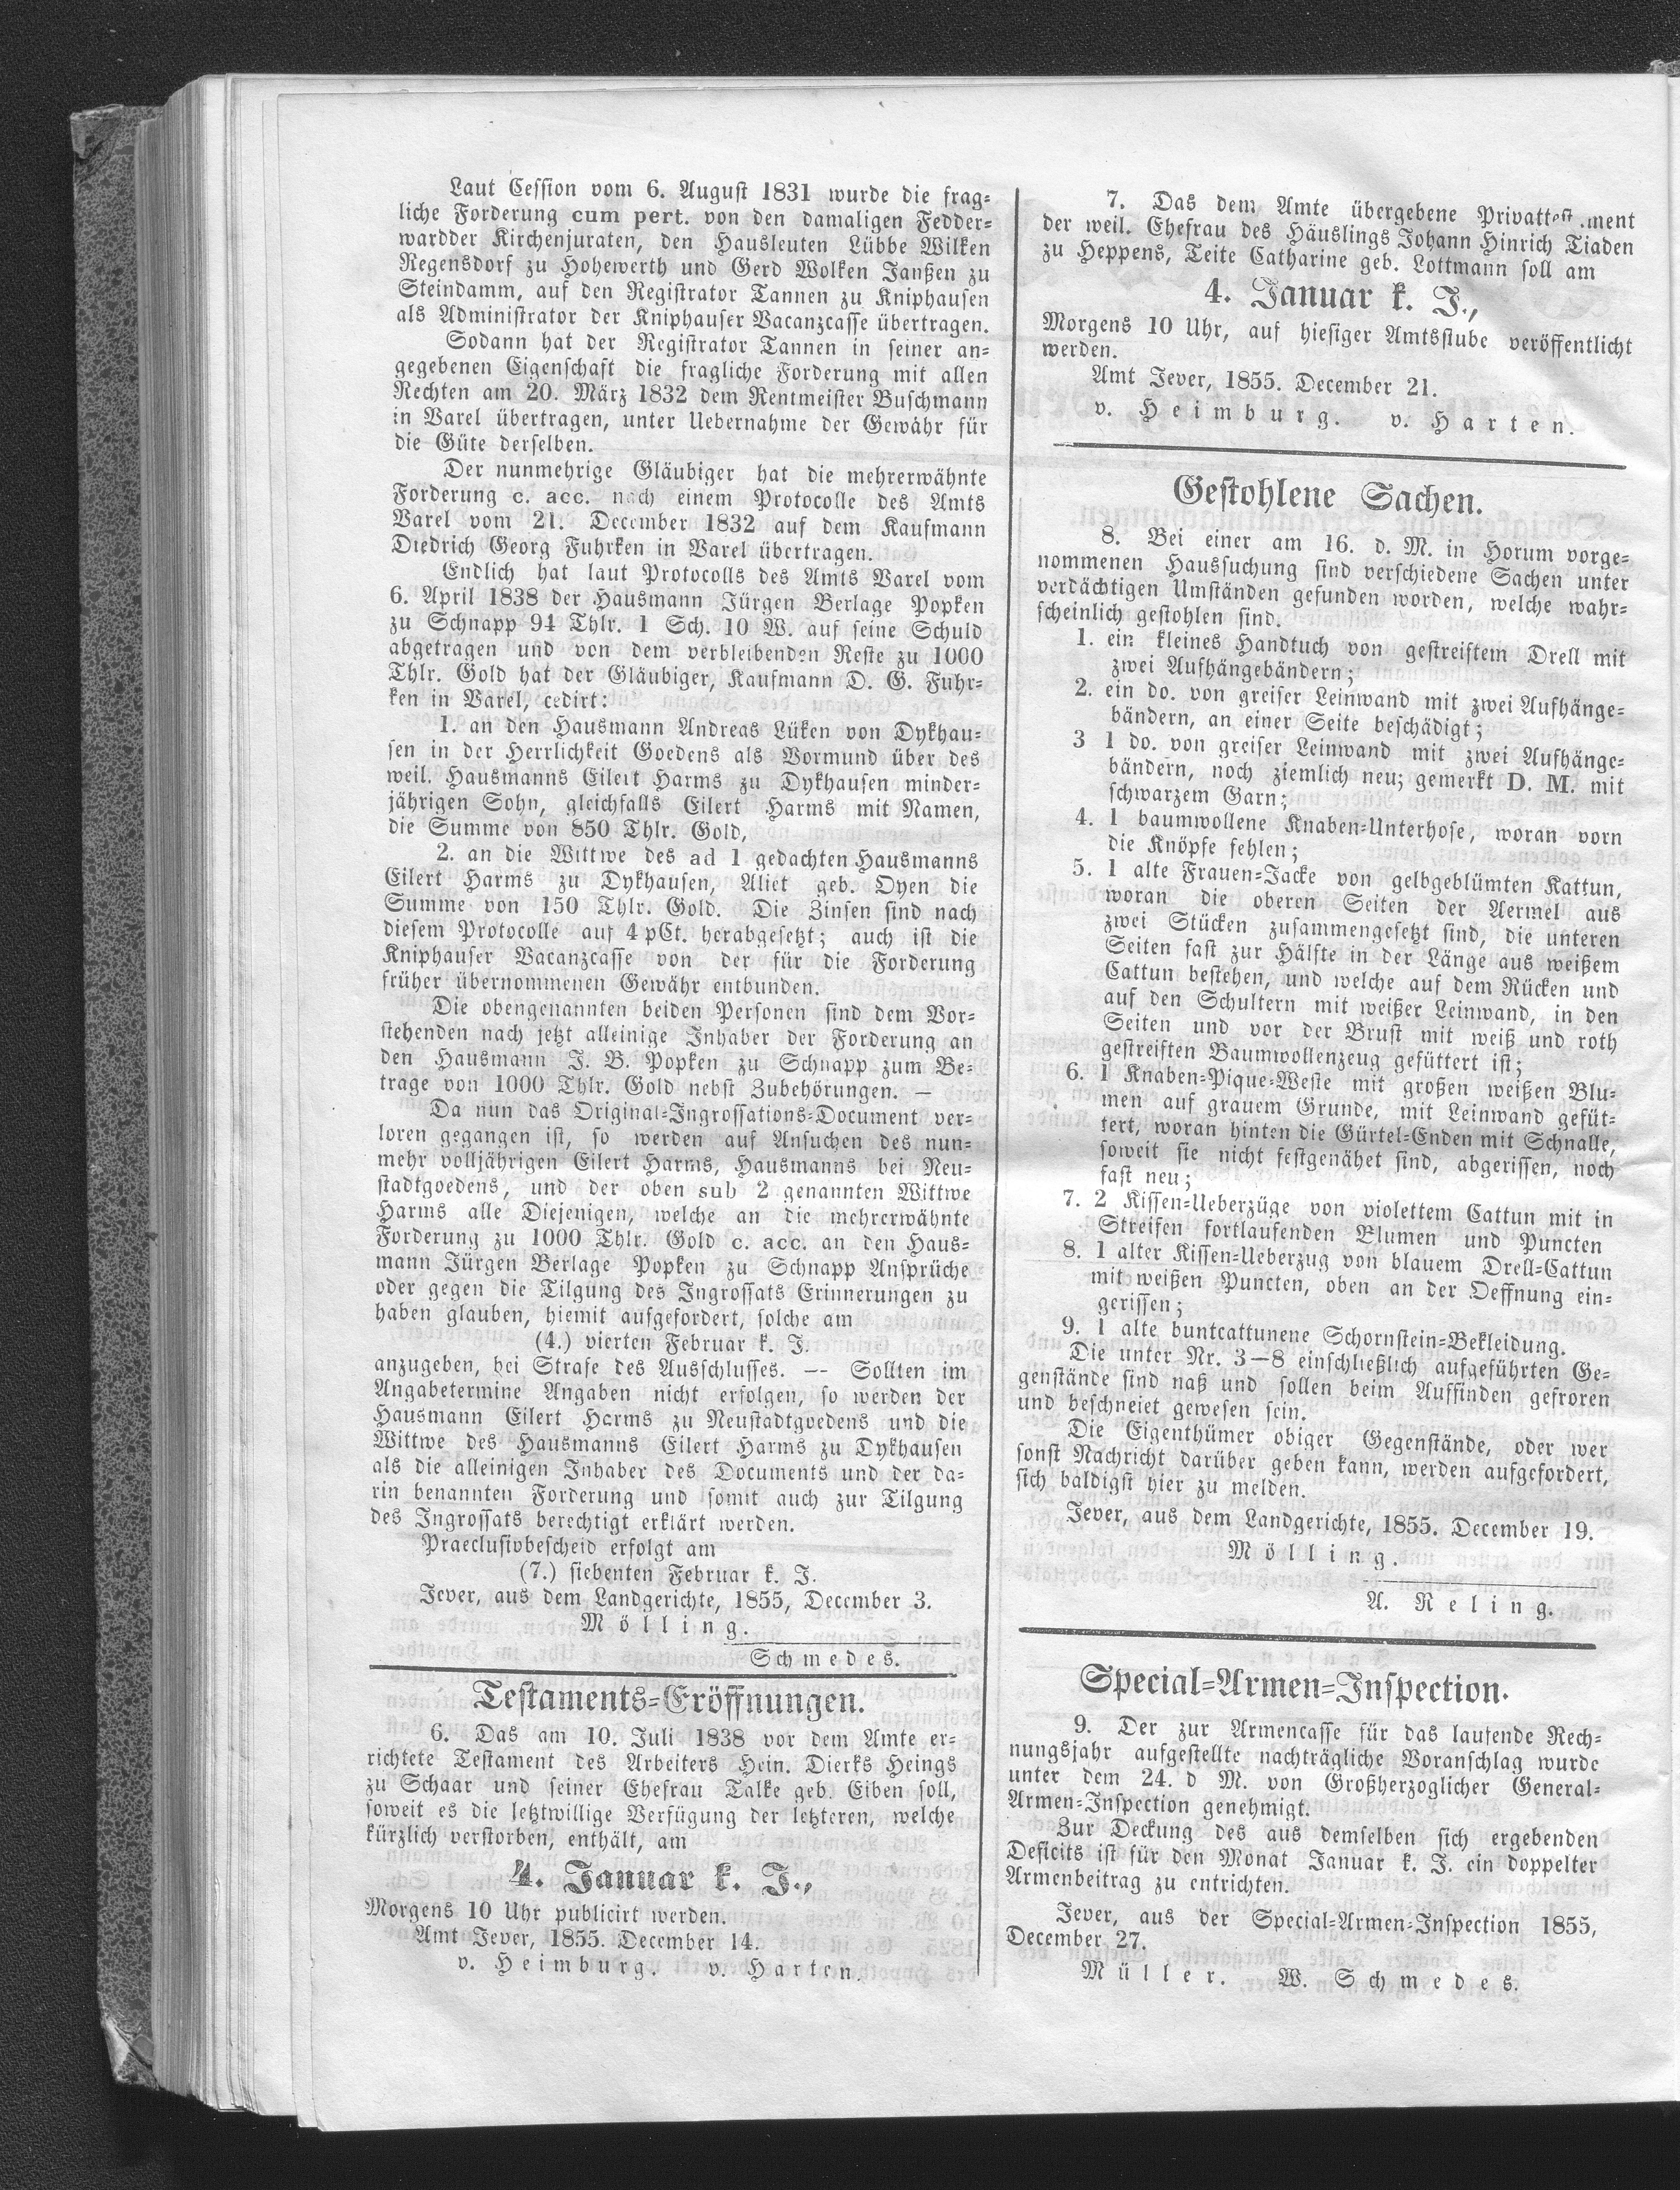 Laut Cession vom 6. August 1831 wurde die frag-
liche Forderung cum pert. von den damaligen Fedder-
wardder Kirchenjuraten, den Hausleuten Lübbe Wilken
Regensdorf zu Hohewerth und Gerd Wolken Janßen zu
Steindamm, auf den Registrator Tannen zu Kniphausen
als Administrator der Kniphauser Vacanzcasse übertragen.
Sodann hat der Registrator Tannen in seiner an-
gegebenen Eigenschaft die fragliche Forderung mit allen
Rechten am 20. März 1832 dem Rentmeister Buschmann
in Varel übertragen, unter Uebernahme der Gewähr für
die Güte derselben.
Der nunmehrige Gläubiger hat die mehrerwähnte
Forderung c. acc. nach einem Protocolle des Amts
Varel vom 21. December 1832 auf dem Kaufmann
Diedrich Georg Fuhrken in Varel übertragen.
Endlich hat laut Protocolls des Amts Varel vom
6. April 1838 der Hausmann Jürgen Berlage Popken
zu Schnapp 94 Thlr. 1 Sch. 10 W. auf seine Schuld
abgetragen und von dem verbleibenden Reste zu 1000
Thlr. Gold hat der Gläubiger, Kaufmann D. G. Fuhr-
ken in Varel, cedirt:
1. an den Hausmann Andreas Lüken von Dykhau-
sen in der Herrlichkeit Goedens als Vormund über des
weil. Hausmanns Eilert Harms zu Dykhausen minder-
jährigen Sohn, gleichfalls Eilert Harms mit Namen,
die Summe von 850 Thlr. Gold,
2. an die Wittwe des ad 1 gedachten Hausmanns
Eilert Harms zu Dykhausen, Aliet geb. Oyen die
Summe von 150 Thlr. Gold. Die Zinsen sind nach
diesem Protocolle auf 4 pCt. herabgesetzt; auch ist die
Kniphauser Vacanzcasse von der für die Forderung
früher übernommenen Gewähr entbunden.
Die obengenannten beiden Personen sind dem Vor-
stehenden nach jetzt alleinige Inhaber der Forderung an
den Hausmann J. B. Popken zu Schnapp zum Be-
trage von 1000 Thlr. Gold nebst Zubehörungen. —
Da nun das Original-Ingrossations-Document ver-
loren gegangen ist, so werden auf Ansuchen des nun-
mehr volljährigen Eilert Harms, Hausmanns bei Neu-
stadtgoedens, und der oben sub 2 genannten Wittwe
Harms alle Diejenigen, welche an die mehrerwähnte
Forderung zu 1000 Thlr. Gold c. acc. an den Haus-
mann Jürgen Berlage Popken zu Schnapp Ansprüche
oder gegen die Tilgung des Ingrossats Erinnerungen zu
haben glauben, hiemit aufgefordert, solche am
(4.) vierten Februar k. J.
anzugeben, bei Strafe des Ausschlusses. — Sollten im
Angabetermine Angaben nicht erfolgen, so werden der
Hausmann Eilert Harms zu Neustadtgoedens und die
Wittwe des Hausmanns Eilert Harms zu Dykhausen
als die alleinigen Inhaber des Documents und der da-
rin benannten Forderung und somit auch zur Tilgung
des Ingrossats berechtigt erklärt werden.
Praeclusivbescheid erfolgt am
(7.) siebenten Februar k. J.
Jever, aus dem Landgerichte, 1855, December 3.
Mölling.
Schmedes.
Testaments-Eröffnungen.
6. Das am 10. Juli 1838 vor dem Amte er-
richtete Testament des Arbeiters Hein. Dierks Heings
zu Schaar und seiner Ehefrau Talke geb. Eiben soll,
soweit es die letztwillige Verfügung der letzteren, welche
kürzlich verstorben, enthält, am
4. Januar k. J.,
Morgens 10 Uhr publicirt werden.
Amt Jever, 1855. December 14.
v. Heimburg. v. Harten.
7. Das dem Amte übergebene Privattest.ment
der weil. Ehefrau des Häuslings Johann Hinrich Tiaden
zu Heppens, Teite Catharine geb. Lottmann soll am
4. Januar k. J.,
Morgens 10 Uhr, auf hiesiger Amtsstube veröffentlicht
werden.
Amt Jever, 1855. December 21.
v. Heimburg. v. Harten.
Gestohlene Sachen.
8. Bei einer am 16. d. M. in Horum vorge-
nommenen Haussuchung sind verschiedene Sachen unter
verdächtigen Umständen gefunden worden, welche wahr-
scheinlich gestohlen sind.
1. ein kleines Handtuch von gestreiftem Drell mit
zwei Aufhängebändern;
2. ein do. von greiser Leinwand mit zwei Aufhänge-
bändern, an einer Seite beschädigt;
3 1 do. von greiser Leinwand mit zwei Aufhänge-
bändern, noch ziemlich neu; gemerkt D. M. mit
schwarzem Garn;
4. 1 baumwollene Knaben-Unterhose, woran vorn
die Knöpfe fehlen;
5. 1 alte Frauen-Jacke von gelbgeblümten Kattun,
woran die oberen Seiten der Aermel aus
zwei Stücken zusammengesetzt sind, die unteren
Seiten fast zur Hälfte in der Länge aus weißem
Cattun bestehen, und welche auf dem Rücken und
auf den Schultern mit weißer Leinwand, in den
Seiten und vor der Brust mit weiß und roth
gestreiften Baumwollenzeug gefüttert ist;
6. 1 Knaben-Pique-Weste mit großen weißen Blu-
men auf grauem Grunde, mit Leinwand gefüt-
tert, woran hinten die Gürtel-Enden mit Schnalle,
soweit sie nicht festgenähet sind, abgerissen, noch
fast neu;
7. 2 Kissen-Ueberzüge von violettem Cattun mit in
Streifen fortlaufenden Blumen und Puncten
8. 1 alter Kissen-Ueberzug von blauem Drell-Cattun
mit weißen Puncten, oben an der Oeffnung ein-
gerissen;
9. 1 alte buntcattunene Schornstein-Bekleidung.
Die unter Nr. 3—8 einschließlich aufgeführten Ge-
genstände sind naß und sollen beim Auffinden gefroren
und beschneiet gewesen sein.
Die Eigenthümer obiger Gegenstände, oder wer
sonst Nachricht darüber geben kann, werden aufgefordert,
sich baldigst hier zu melden.
Jever, aus dem Landgerichte, 1855. December 19.
Mölling.
A. Reling.
Special-Armen-Inspection.
9. Der zur Armencasse für das laufende Rech-
nungsjahr aufgestellte nachträgliche Voranschlag wurde
unter dem 24. d M. von Großherzoglicher General-
Armen-Inspection genehmigt.
Zur Deckung des aus demselben sich ergebenden
Deficits ist für den Monat Januar k. J. ein doppelter
Armenbeitrag zu entrichten.
Jever, aus der Special-Armen-Inspection 1855,
December 27.
Müller. W. Schmedes.